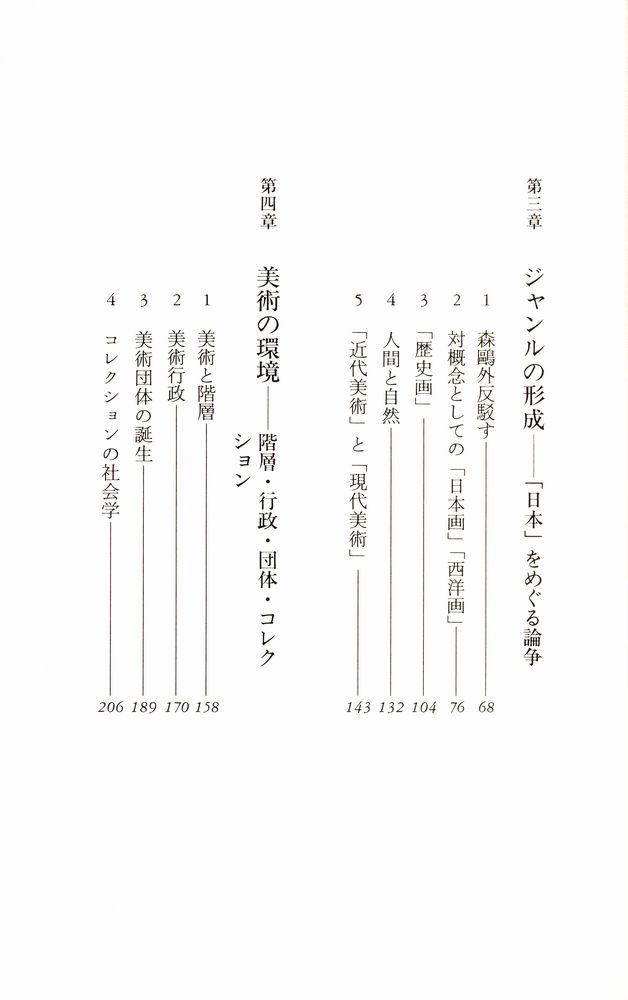 第三章　ジャンルの形成――「日本」をめぐる論争
1　森鷗外反駁す 68
2　対概念としての「日本画」「西洋画」 76
3　「歴史画」 104
4　人間と自然 132
5　「近代美術」と「現代美術」 143
第四章　美術の環境――階層・行政・団体・コレク
ション
1　美術と階層 158
2　美術行政 170
3　美術団体の誕生 189
4　コレクションの社会学 206